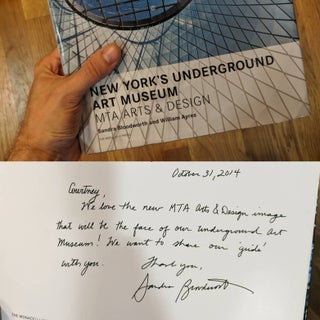 NEW YORK'S UNDERGROUND
ART MUSEUM
MTA ARTS & DESIGN
Sandra Bloodworth and William Ayres
October 31, 2014
Courtney,
We love the new MTA Arts & Design image
that will be the face of our underground Art
Museum! We want to share our 'guide'
with you. Thank you,
Sandra Bloodworth